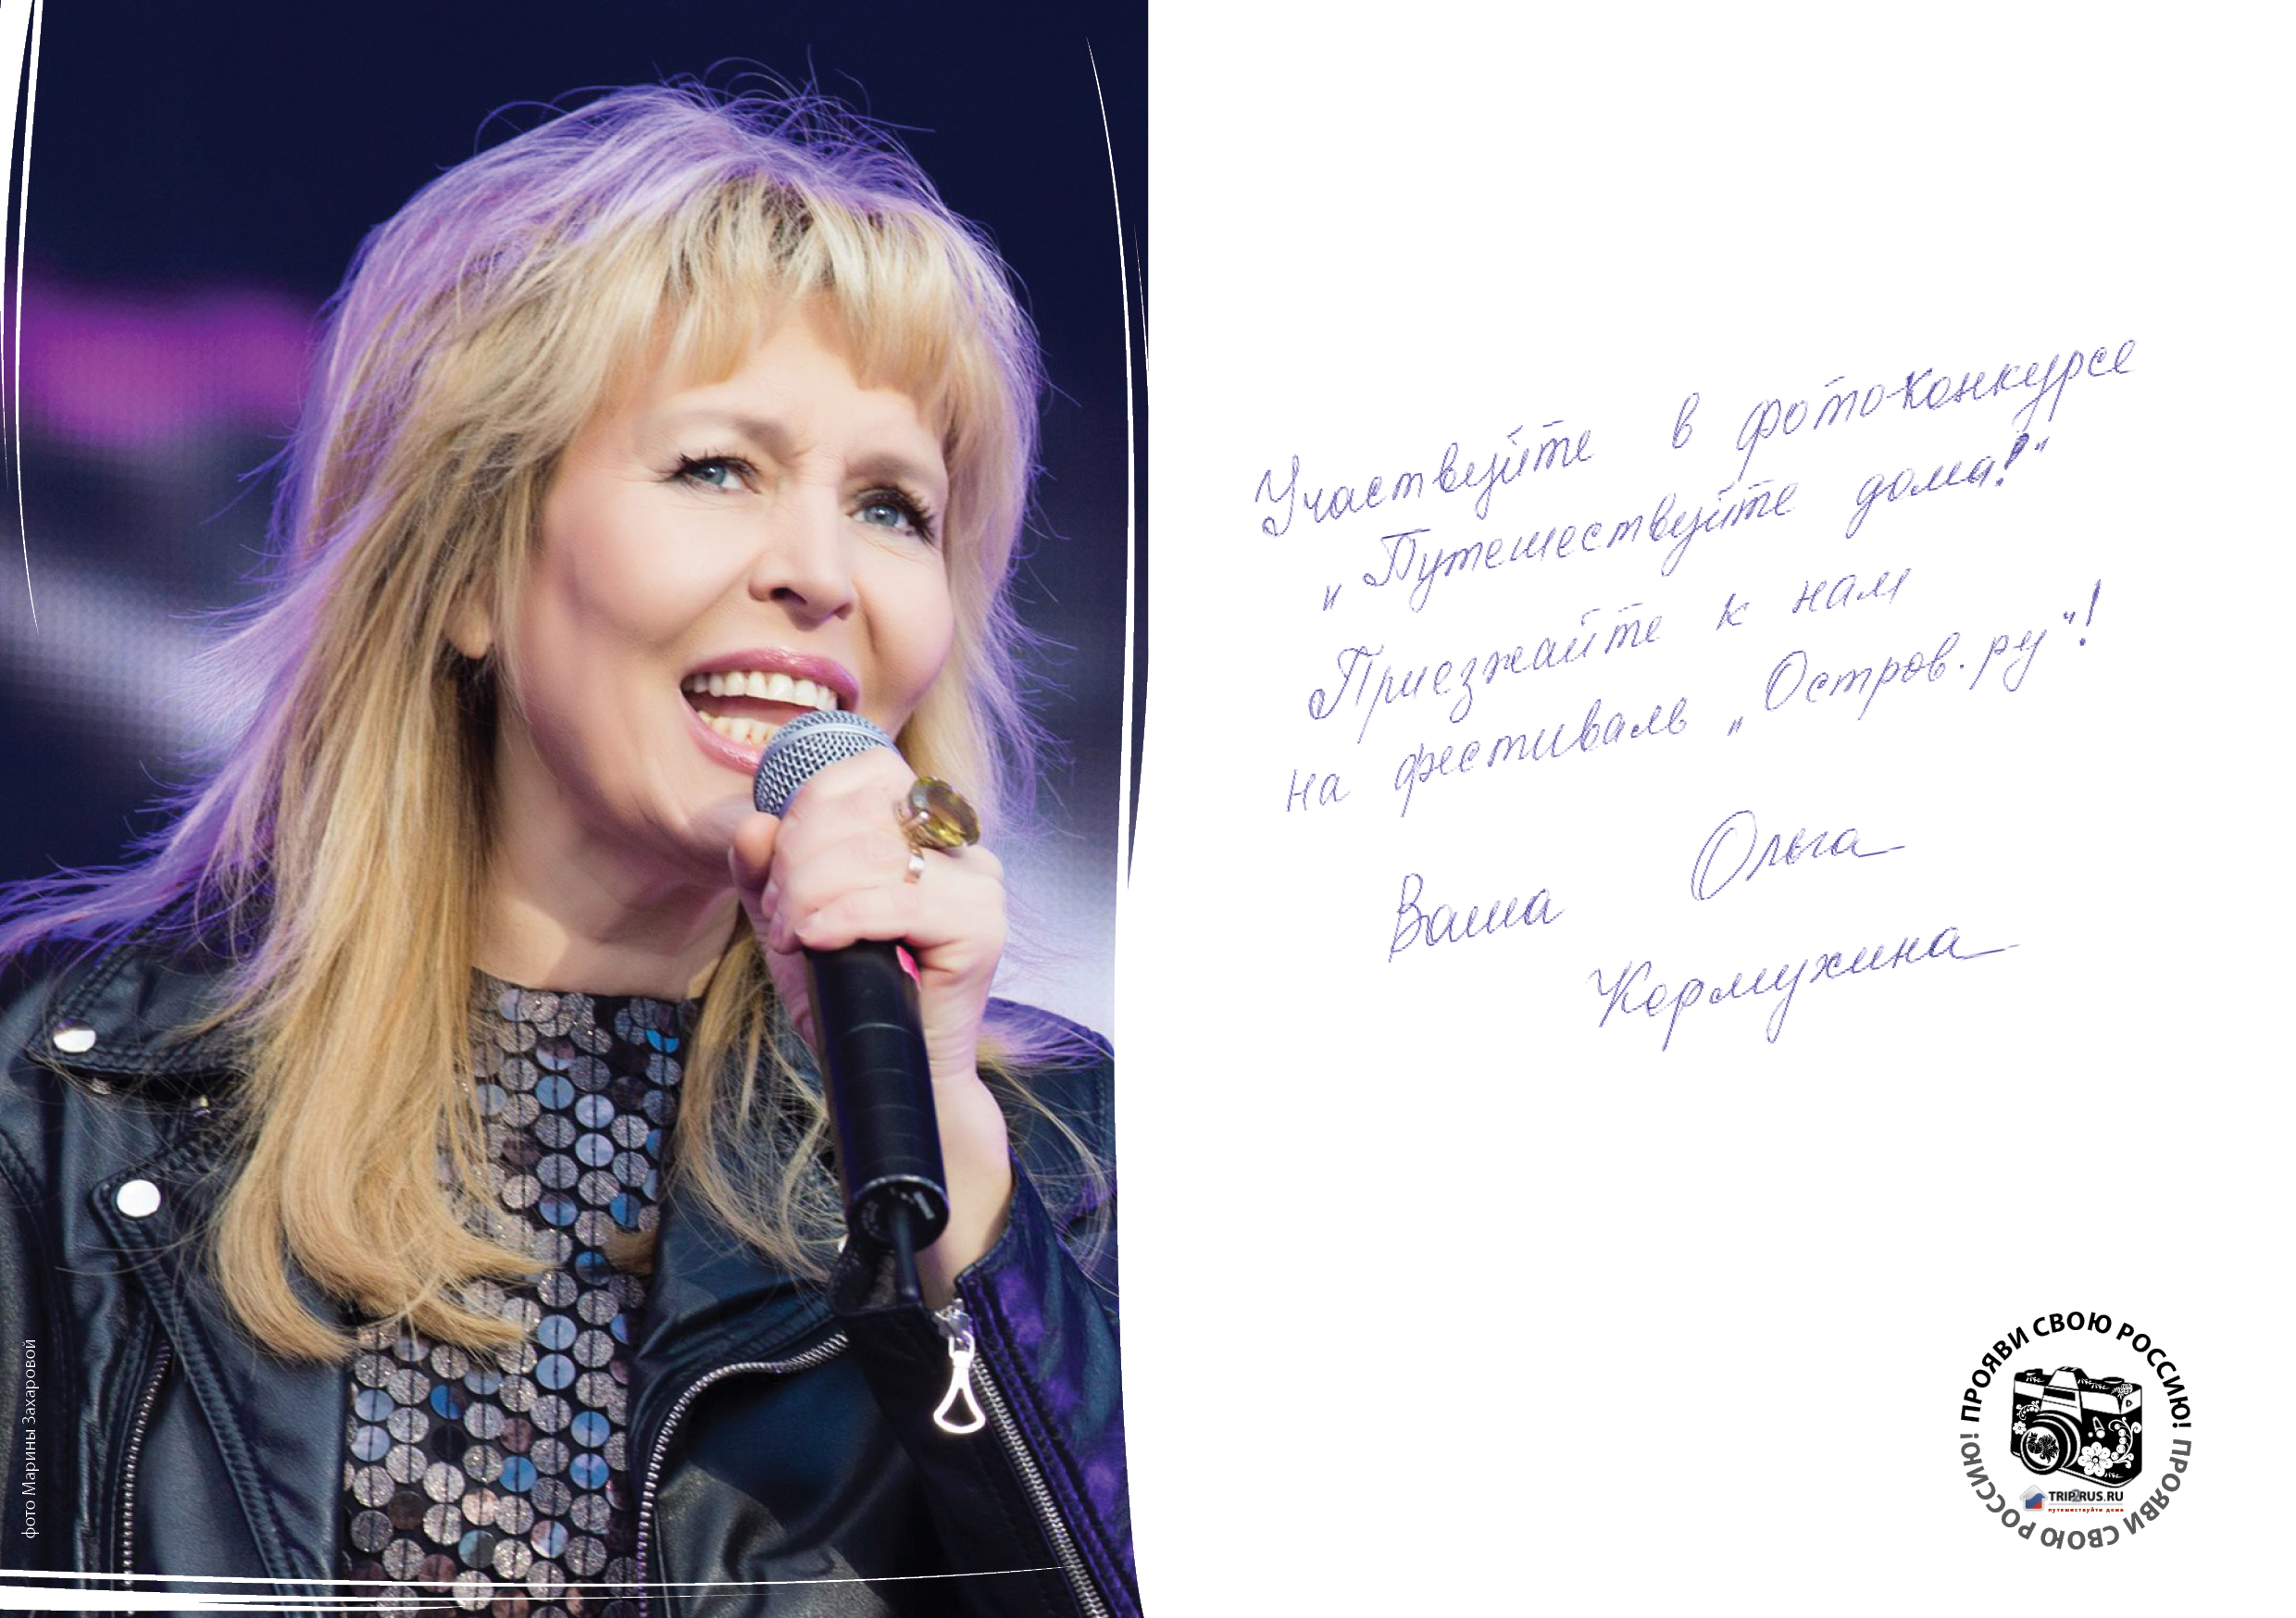 Участвуйте в фотоконкурсе
„Путешествуйте дома!“
Приезжайте к нам
на фестиваль „Остров.ру“!
Ваша Ольга
Кормухина
фото Марины Захаровой
ПРОЯВИ СВОЮ РОССИЮ! ПРОЯВИ СВОЮ РОССИЮ!
TRIP2RUS.RU
путешествуйте дома